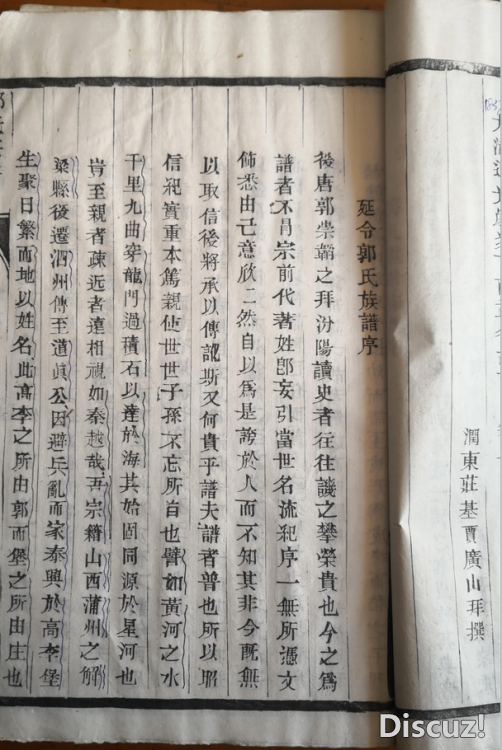 潤東莊基賈廣山拜撰
延令郭氏族譜序
後唐郭崇韜之拜汾陽讀史者往往譏之攀榮貴也今之為
譜者不肖宗前代著姓卽妄引當世名流犯序一無所憑文
飾悉由己意欣二然自以為是誇於人而不知其非今旣無
以取信後將承以傳訛斯又何貴乎譜夫譜者普也所以昭
信紀實重本篤親使世世子孫不忘所自也譬如黃河之水
千里九曲穿龍門過積石以達於海其始固同源於星河也
豈至親者疎近者遠相視如秦越哉吾宗籍山西蒲州之解
梁縣後遷泗州傳至道眞公因避兵亂而家泰興於高李堡
生聚日繁而地以姓名此高李之所由郭而堡之所由庄也
Discuz!